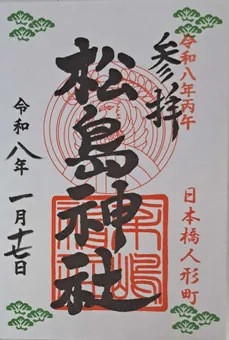 令和八年丙午
奉拝
松島神社
日本橋人形町
令和八年 一月十七日